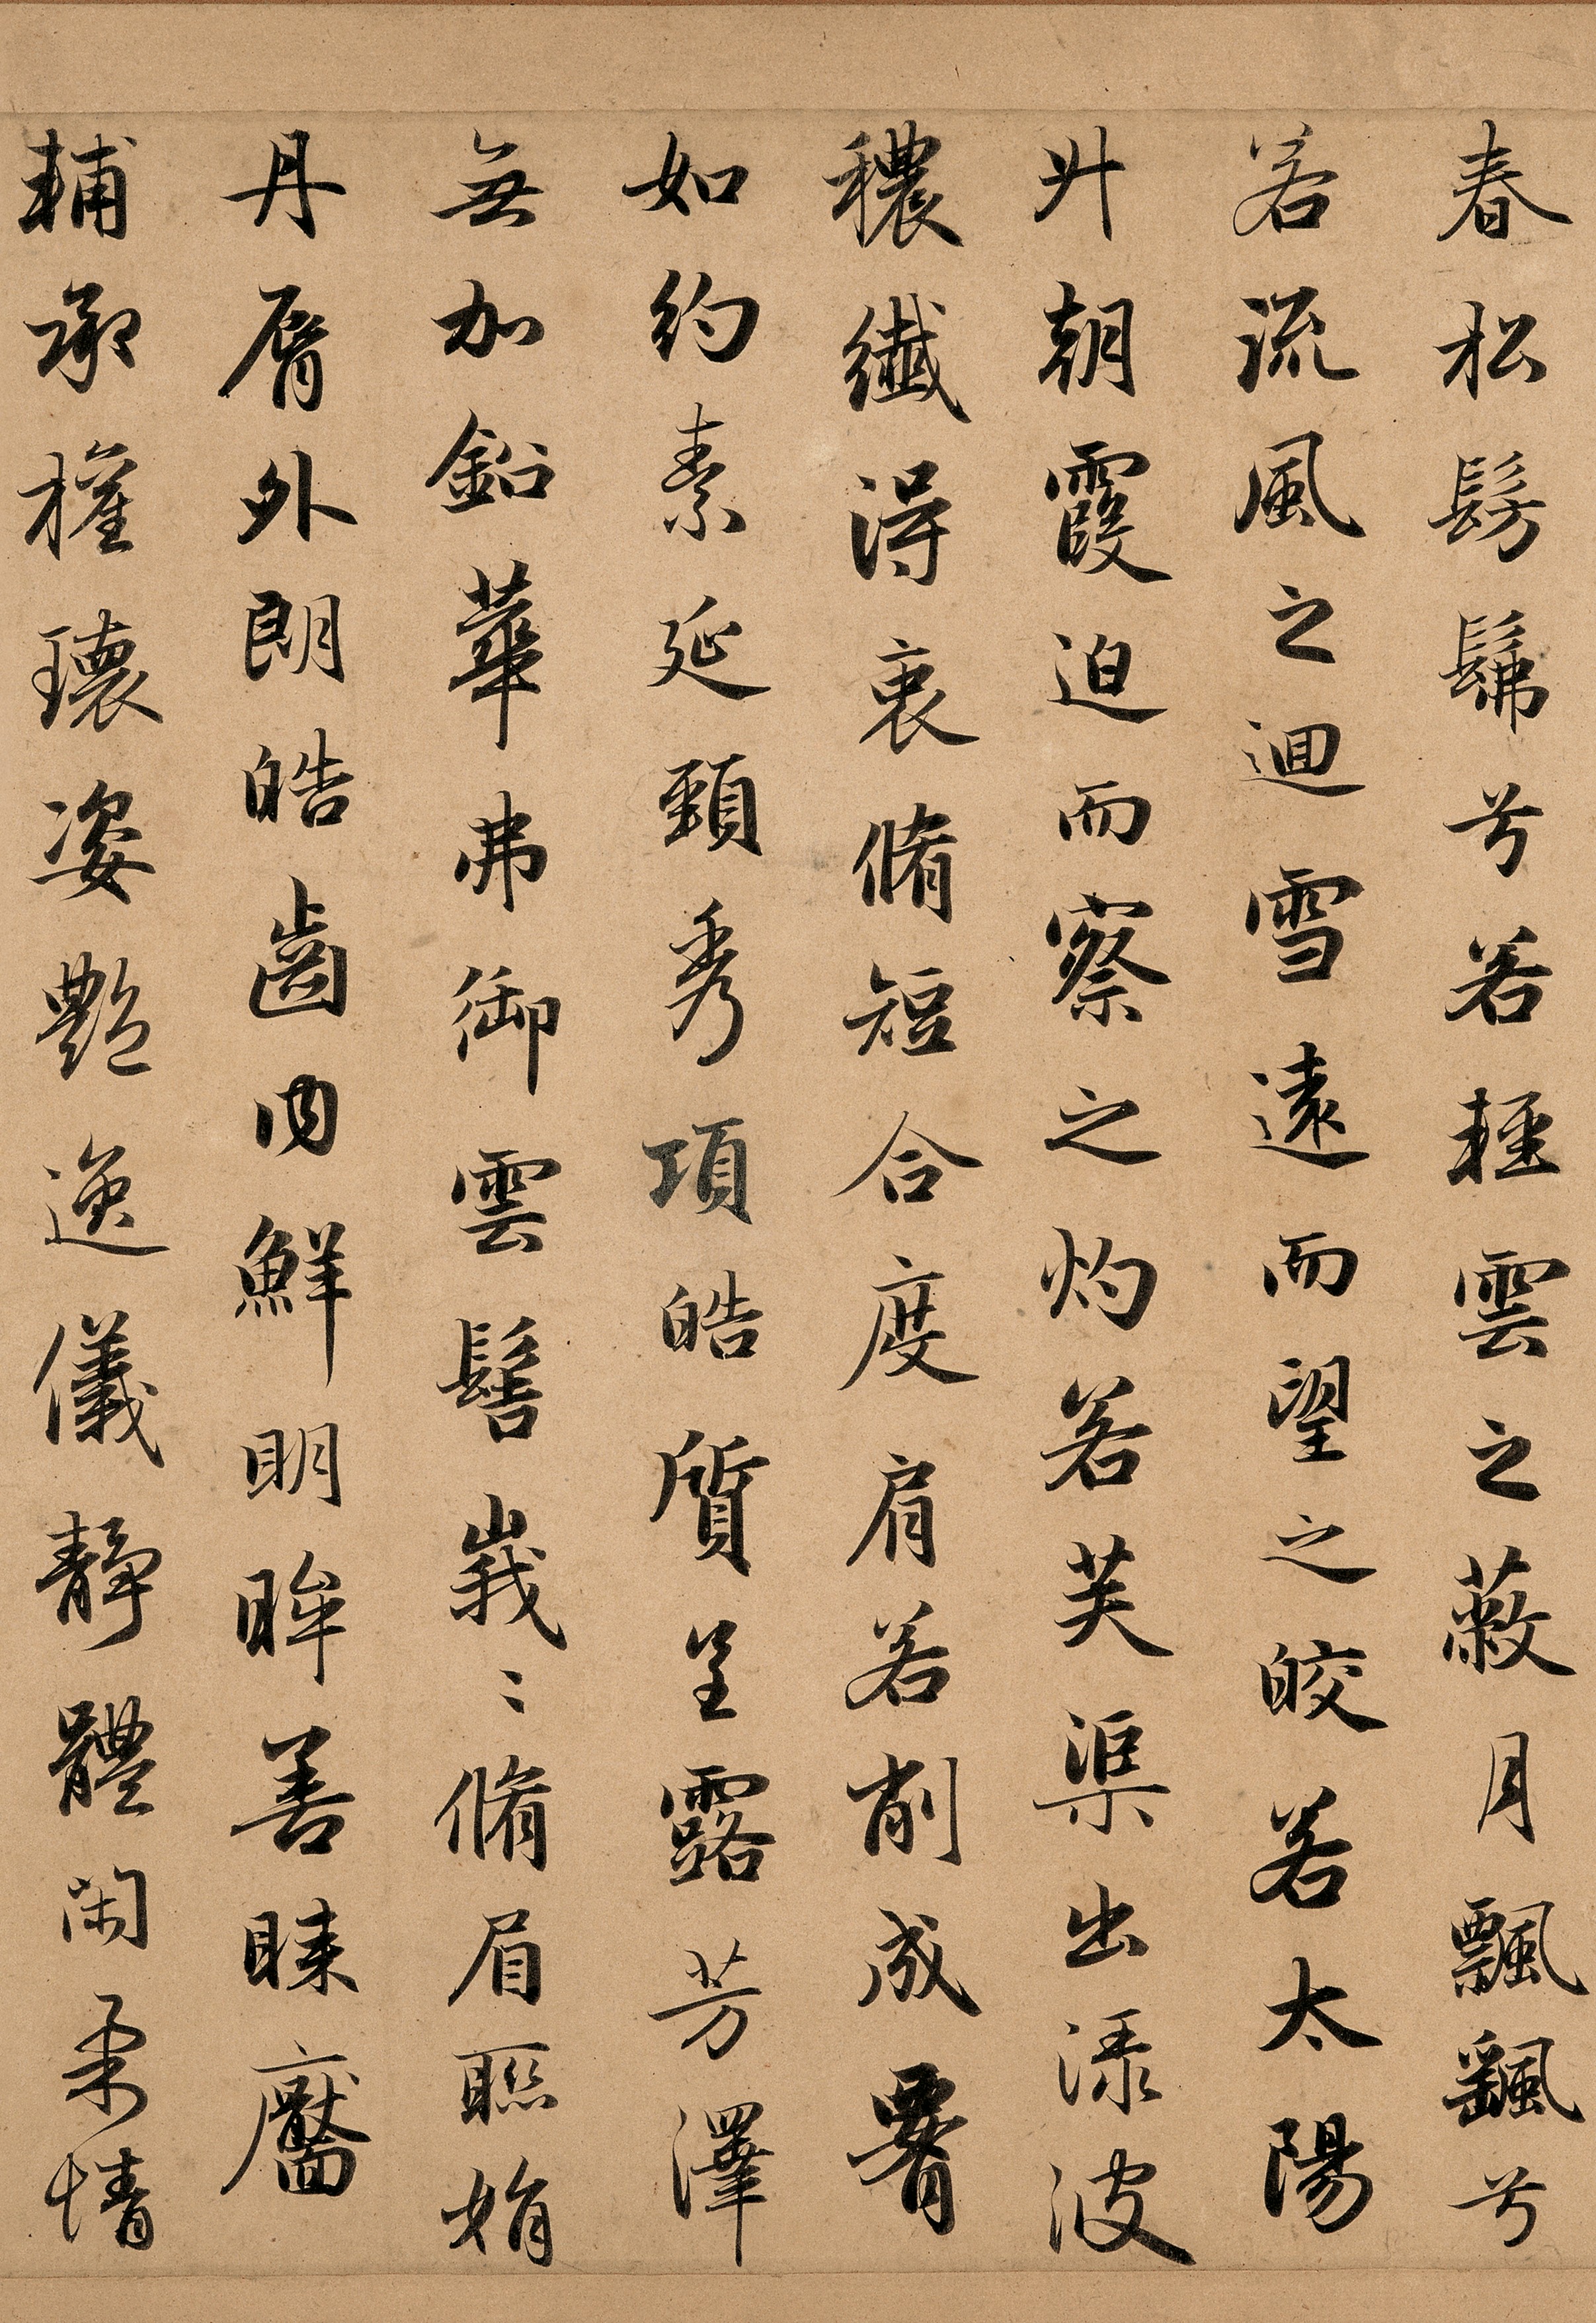 春松髣髴兮若輕雲之蔽月飄颻兮
若流風之迴雪遠而望之皎若太陽
升朝霞迫而察之灼若芙渠出淥波
穠纖得衷脩短合度肩若削成腰
如約素延頸秀項皓質呈露芳澤
無加鉛華弗御雲髻峩〻脩眉聯娟
丹脣外朗皓齒内鮮明眸善睞靨
輔承權瓌姿艷逸儀靜體閑柔情